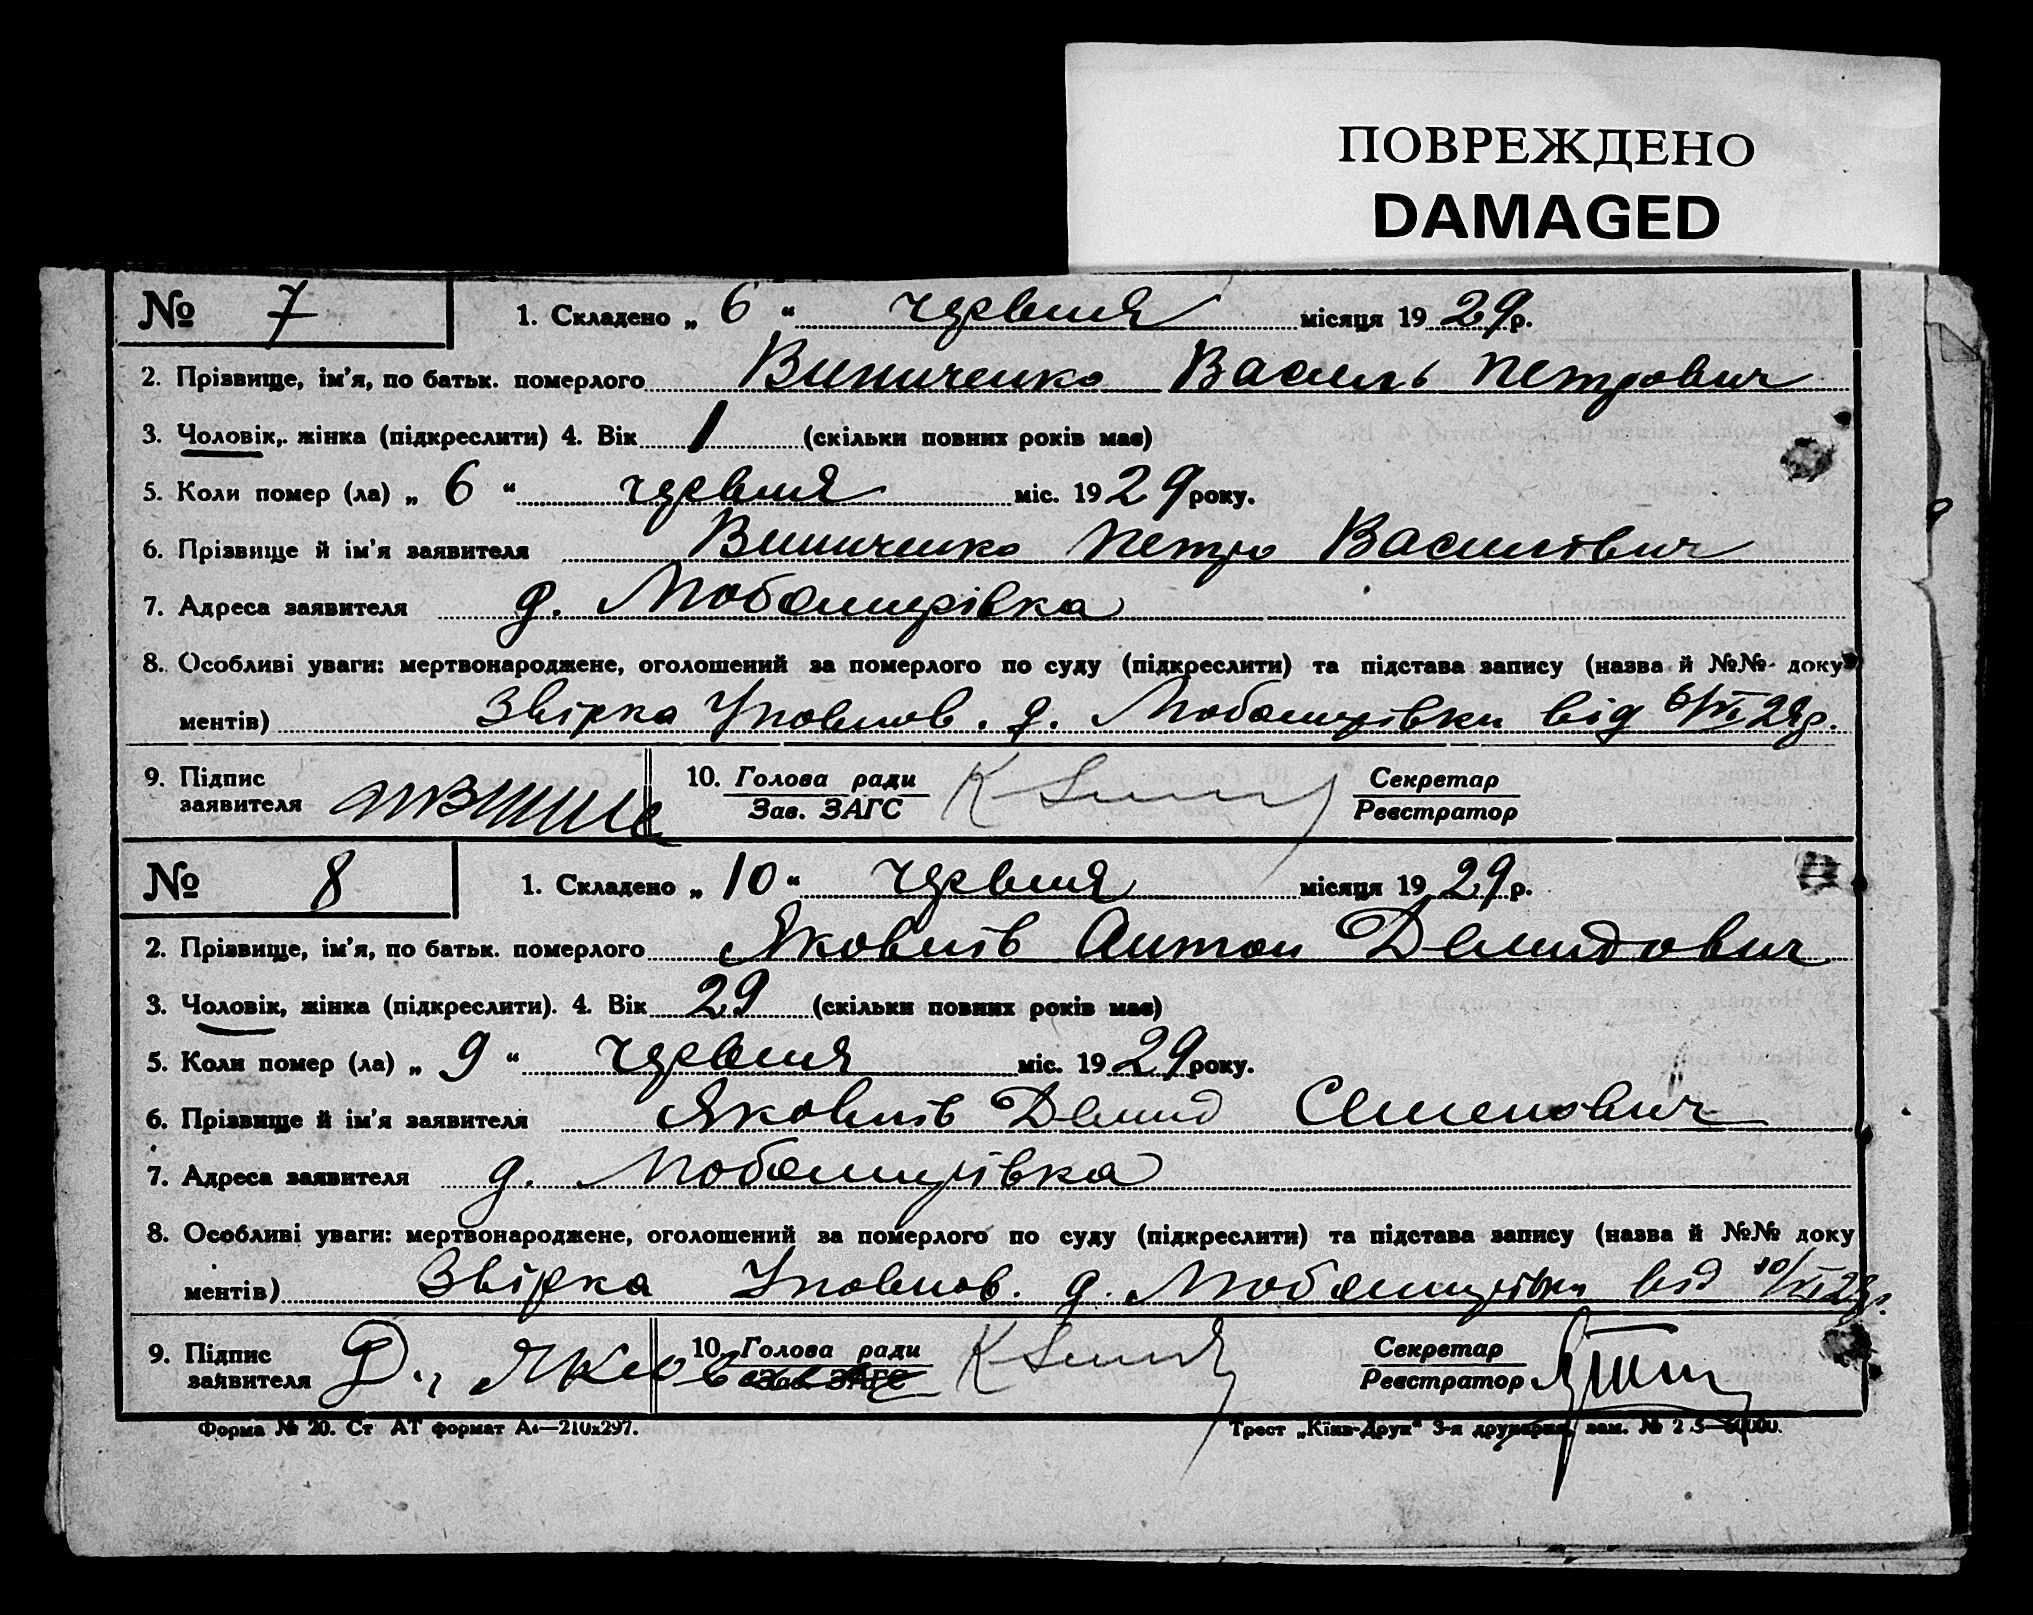 ПОВРЕЖДЕНО
DAMAGED
№ 7 1. Складено „ 6 “ червня місяця 1929 р.
2. Прізвище, ім'я, по батьк. померлого Виниченко Василь Петрович
3. Чоловік, жінка (підкреслити) 4. Вік 1 (скільки повних років має)
5. Коли помер (ла) „ 6 “ червня міс. 1929 року.
6. Прізвище й ім'я заявителя Виниченко Петро Васильович
7. Адреса заявителя д.
8. Особливі уваги: мертвонароджене, оголошений за померлого по суду (підкреслити) та підстава запису (назва й №№ доку
ментів) Звірка Уповнов. д. від 6/VI 29р.
9. Підпис 10. Голова ради Секретар
заявителя Зав. ЗАГС Реєстратор
№ 8 1. Складено „ 10 “ червня місяця 1929 р.
2. Прізвище, ім'я, по батьк. померлого Яковлів Антон Демидович
3. Чоловік, жінка (підкреслити). 4. Вік 29 (скільки повних років має)
5. Коли помер (ла) „ 9 “ червня міс. 1929 року.
6. Прізвище й ім'я заявителя Яковлів Демид Семенович
7. Адреса заявителя д.
8. Особливі уваги: мертвонароджене, оголошений за померлого по суду (підкреслити) та підстава запису (назва й №№ доку
ментів) Звірка Уповнов. д. від 10/VI 29р.
9. Підпис Д. 10. Голова ради Секретар
заявителя Зав. ЗАГС Реєстратор
Форма № 20. Ст АТ формат А4—210х297. Трест „Київ-Друк“ 3-я друкарня, зам. №